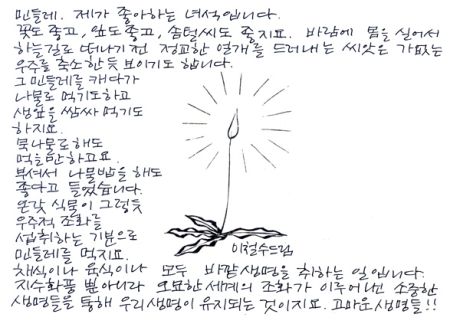 민들레. 제가 좋아하는 녀석입니다.
꽃도 좋고, 잎도 좋고, 솜털씨도 좋지요. 바람에 몸을 실어서
하늘길로 떠나기 전 정교한 얼개를 드러내는 씨앗은 가없는
우주를 축소한 듯 보이기도 합니다.
그 민들레를 캐다가
나물로 먹기도하고
생잎을 쌈싸 먹기도
하지요.
묵나물로 해도
먹을만 하고요.
뿌셔서 나물밥을 해도
좋다고 들었습니다.
온갖 식물이 그렇듯
우주적 조화를
섭취하는 기분으로
민들레를 먹지요.
이철수드림
채식이나 육식이나 모두 바깥생명을 취하는 일입니다.
지수화풍 뿐 아니라 오묘한 세계의 조화가 이루어낸 소중한
생명들을 통해 우리 생명이 유지되는 것이지요. 고마운 생명들!!